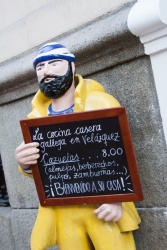 La cocina casera
gallega en Velázquez
Cazuelas . . . . 8.00
(almejas, berberechos,
pulpo, zamburiñas...)
¡BIENVENIDO A SU CASA!